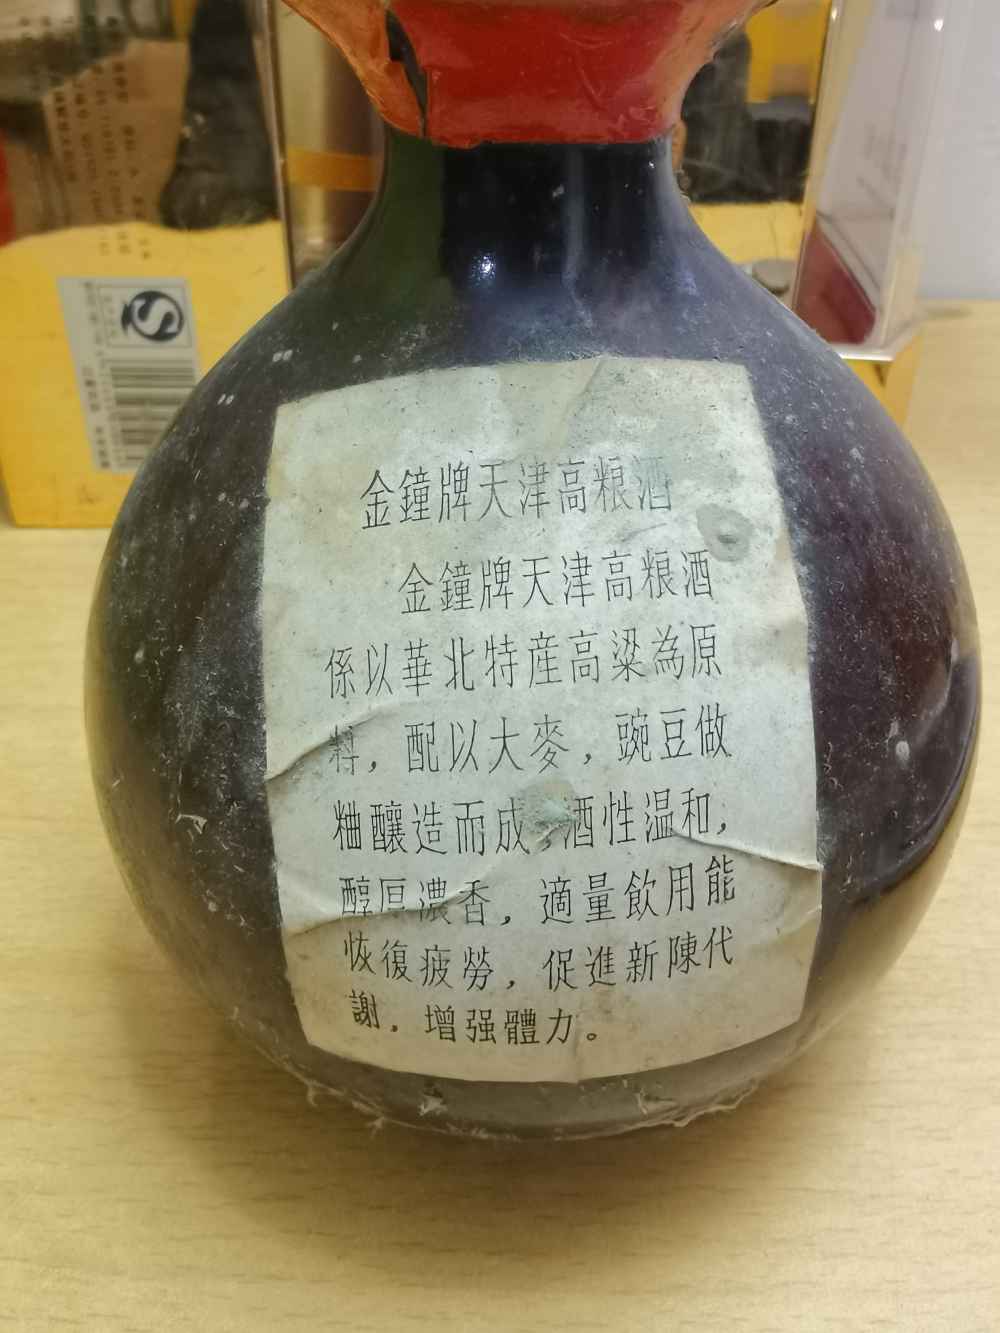 金鐘牌天津高粮酒
金鐘牌天津高粮酒
係以華北特産高粱為原
料，配以大麥，豌豆做
粬釀造而成，酒性温和，
醇厚濃香，適量飲用能
恢復疲勞，促進新陳代
謝，增强體力。